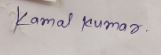 Kamal Kumar.